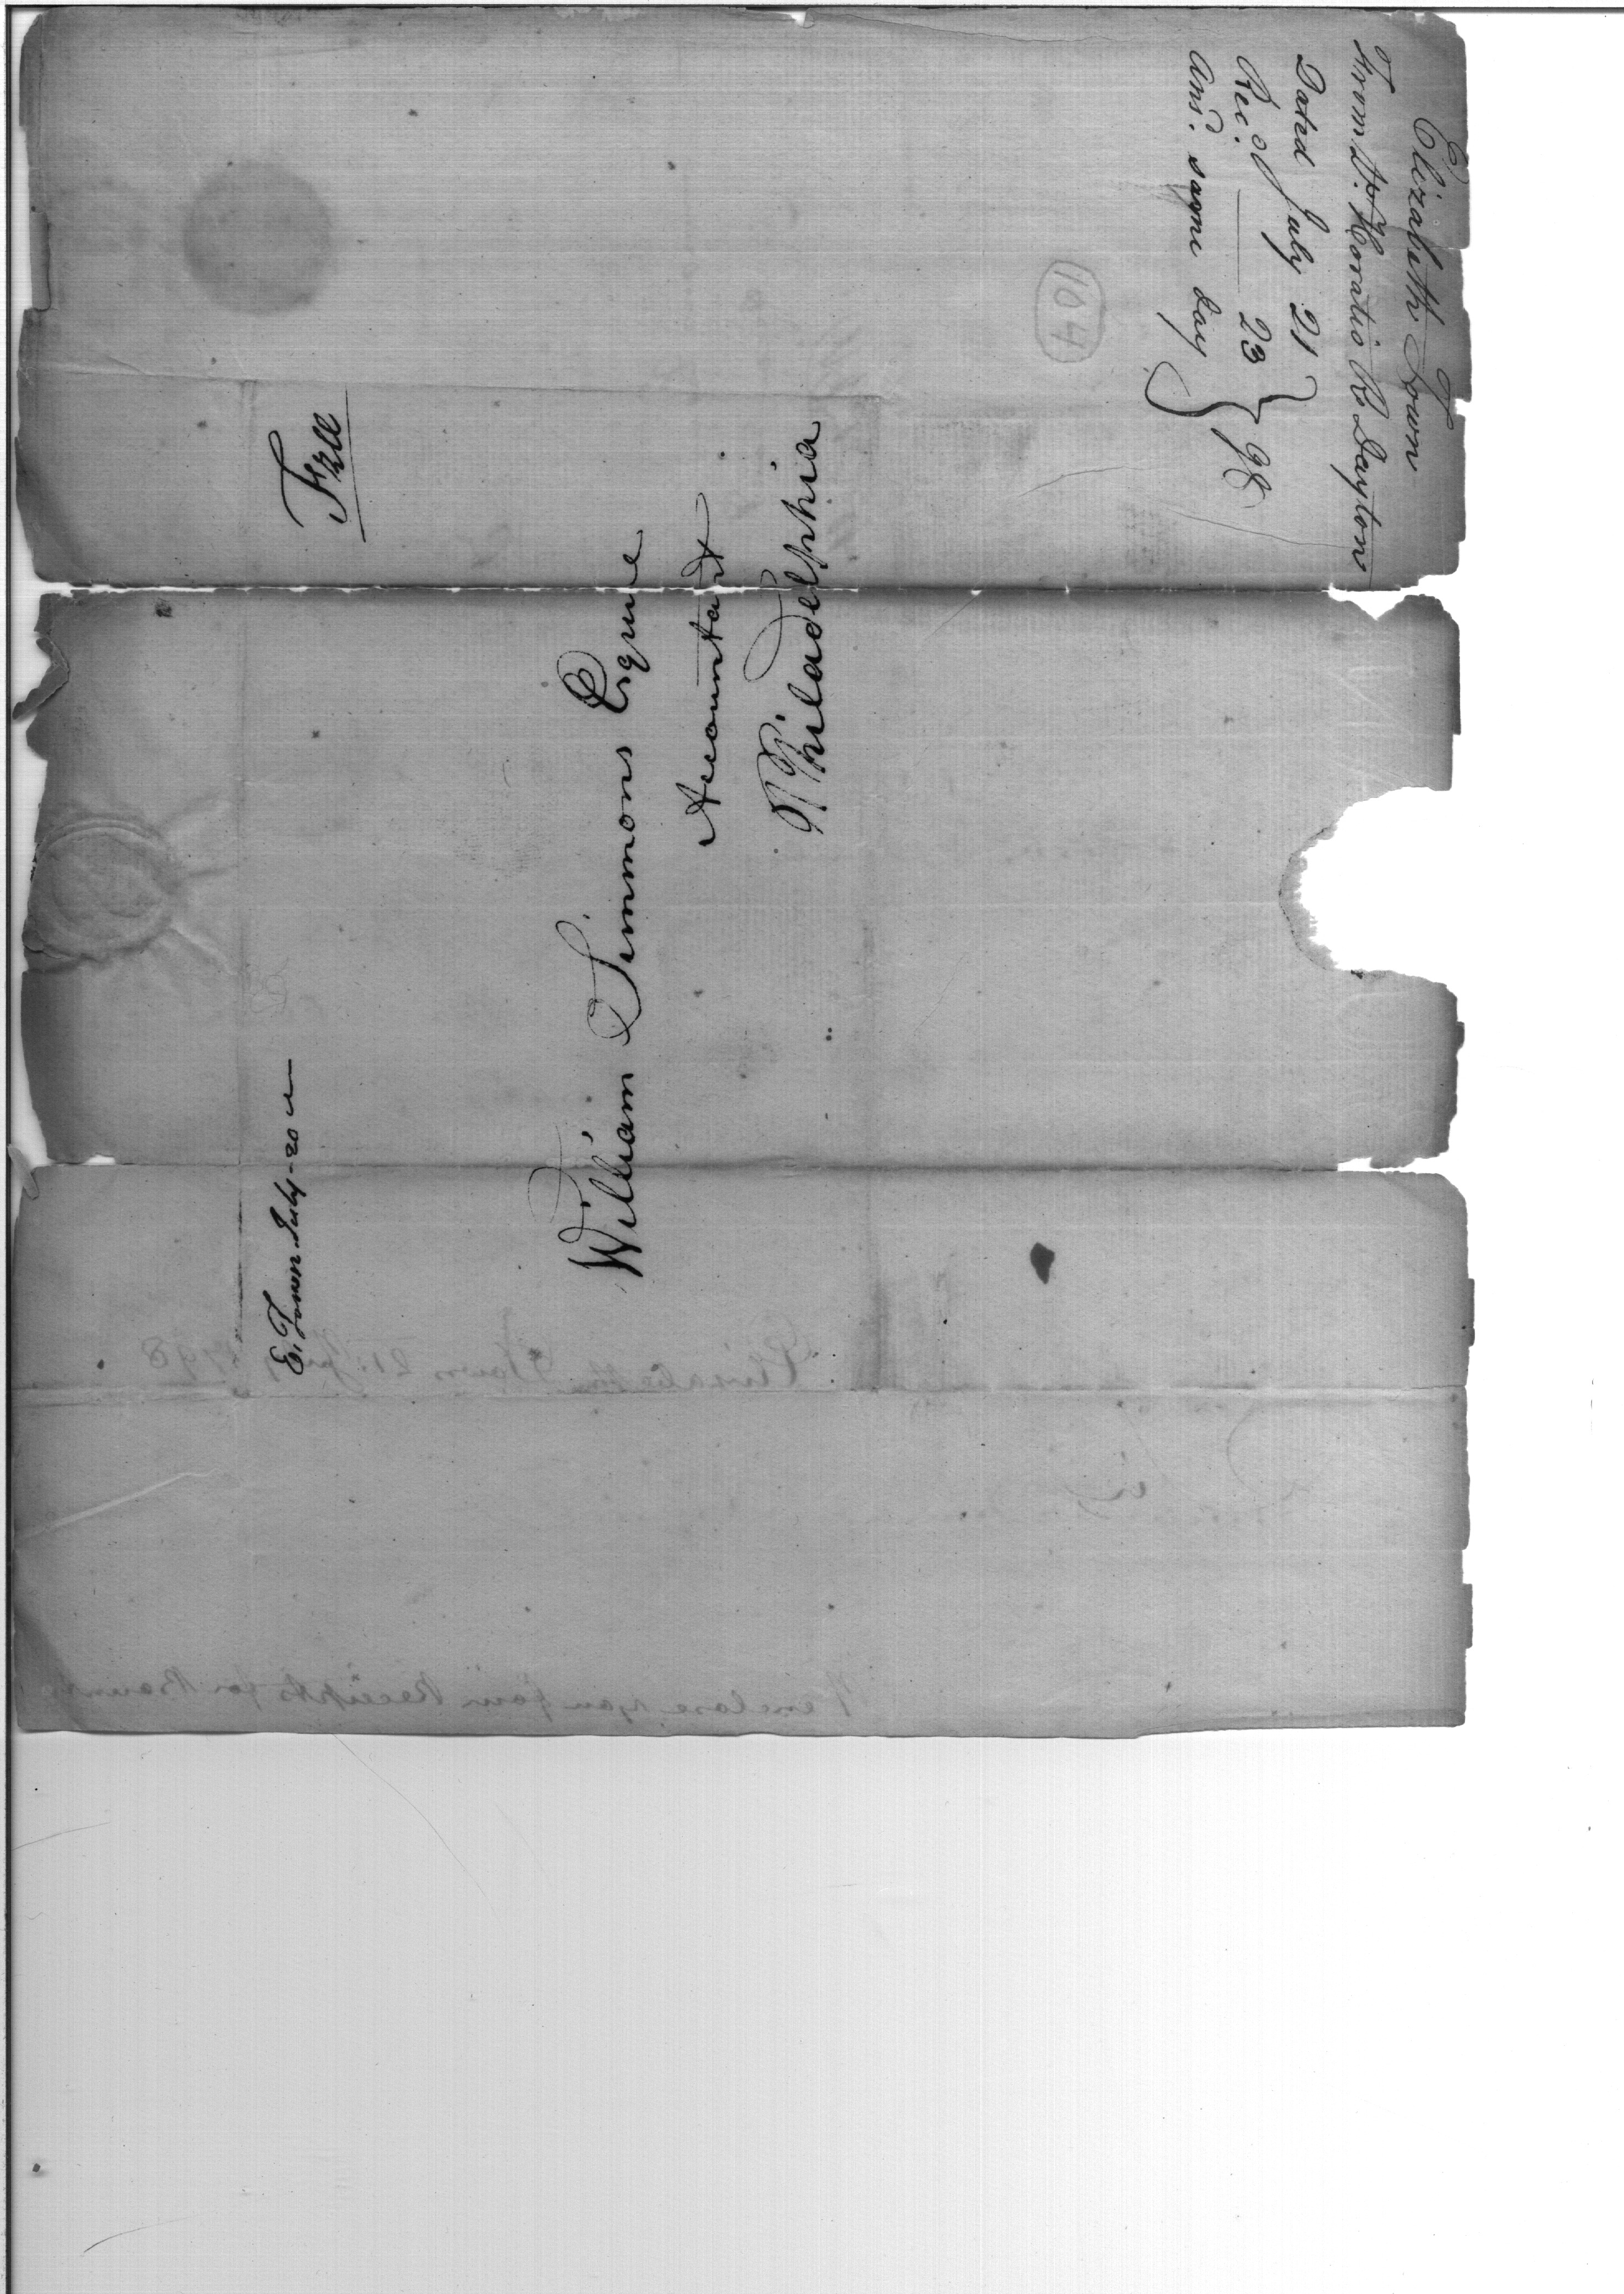 Elizabeth Town
From Lt. Horatio R. Dayton
Dated July 21
Rec.d —— 23 } 98
Ans.d same day
104
Free
E. Town July 20
William Simmons Esquire
Accountant
Philadelphia
Elizabeth Town 21 July 1798
Sir
I enclose you four Receipts for Bounty